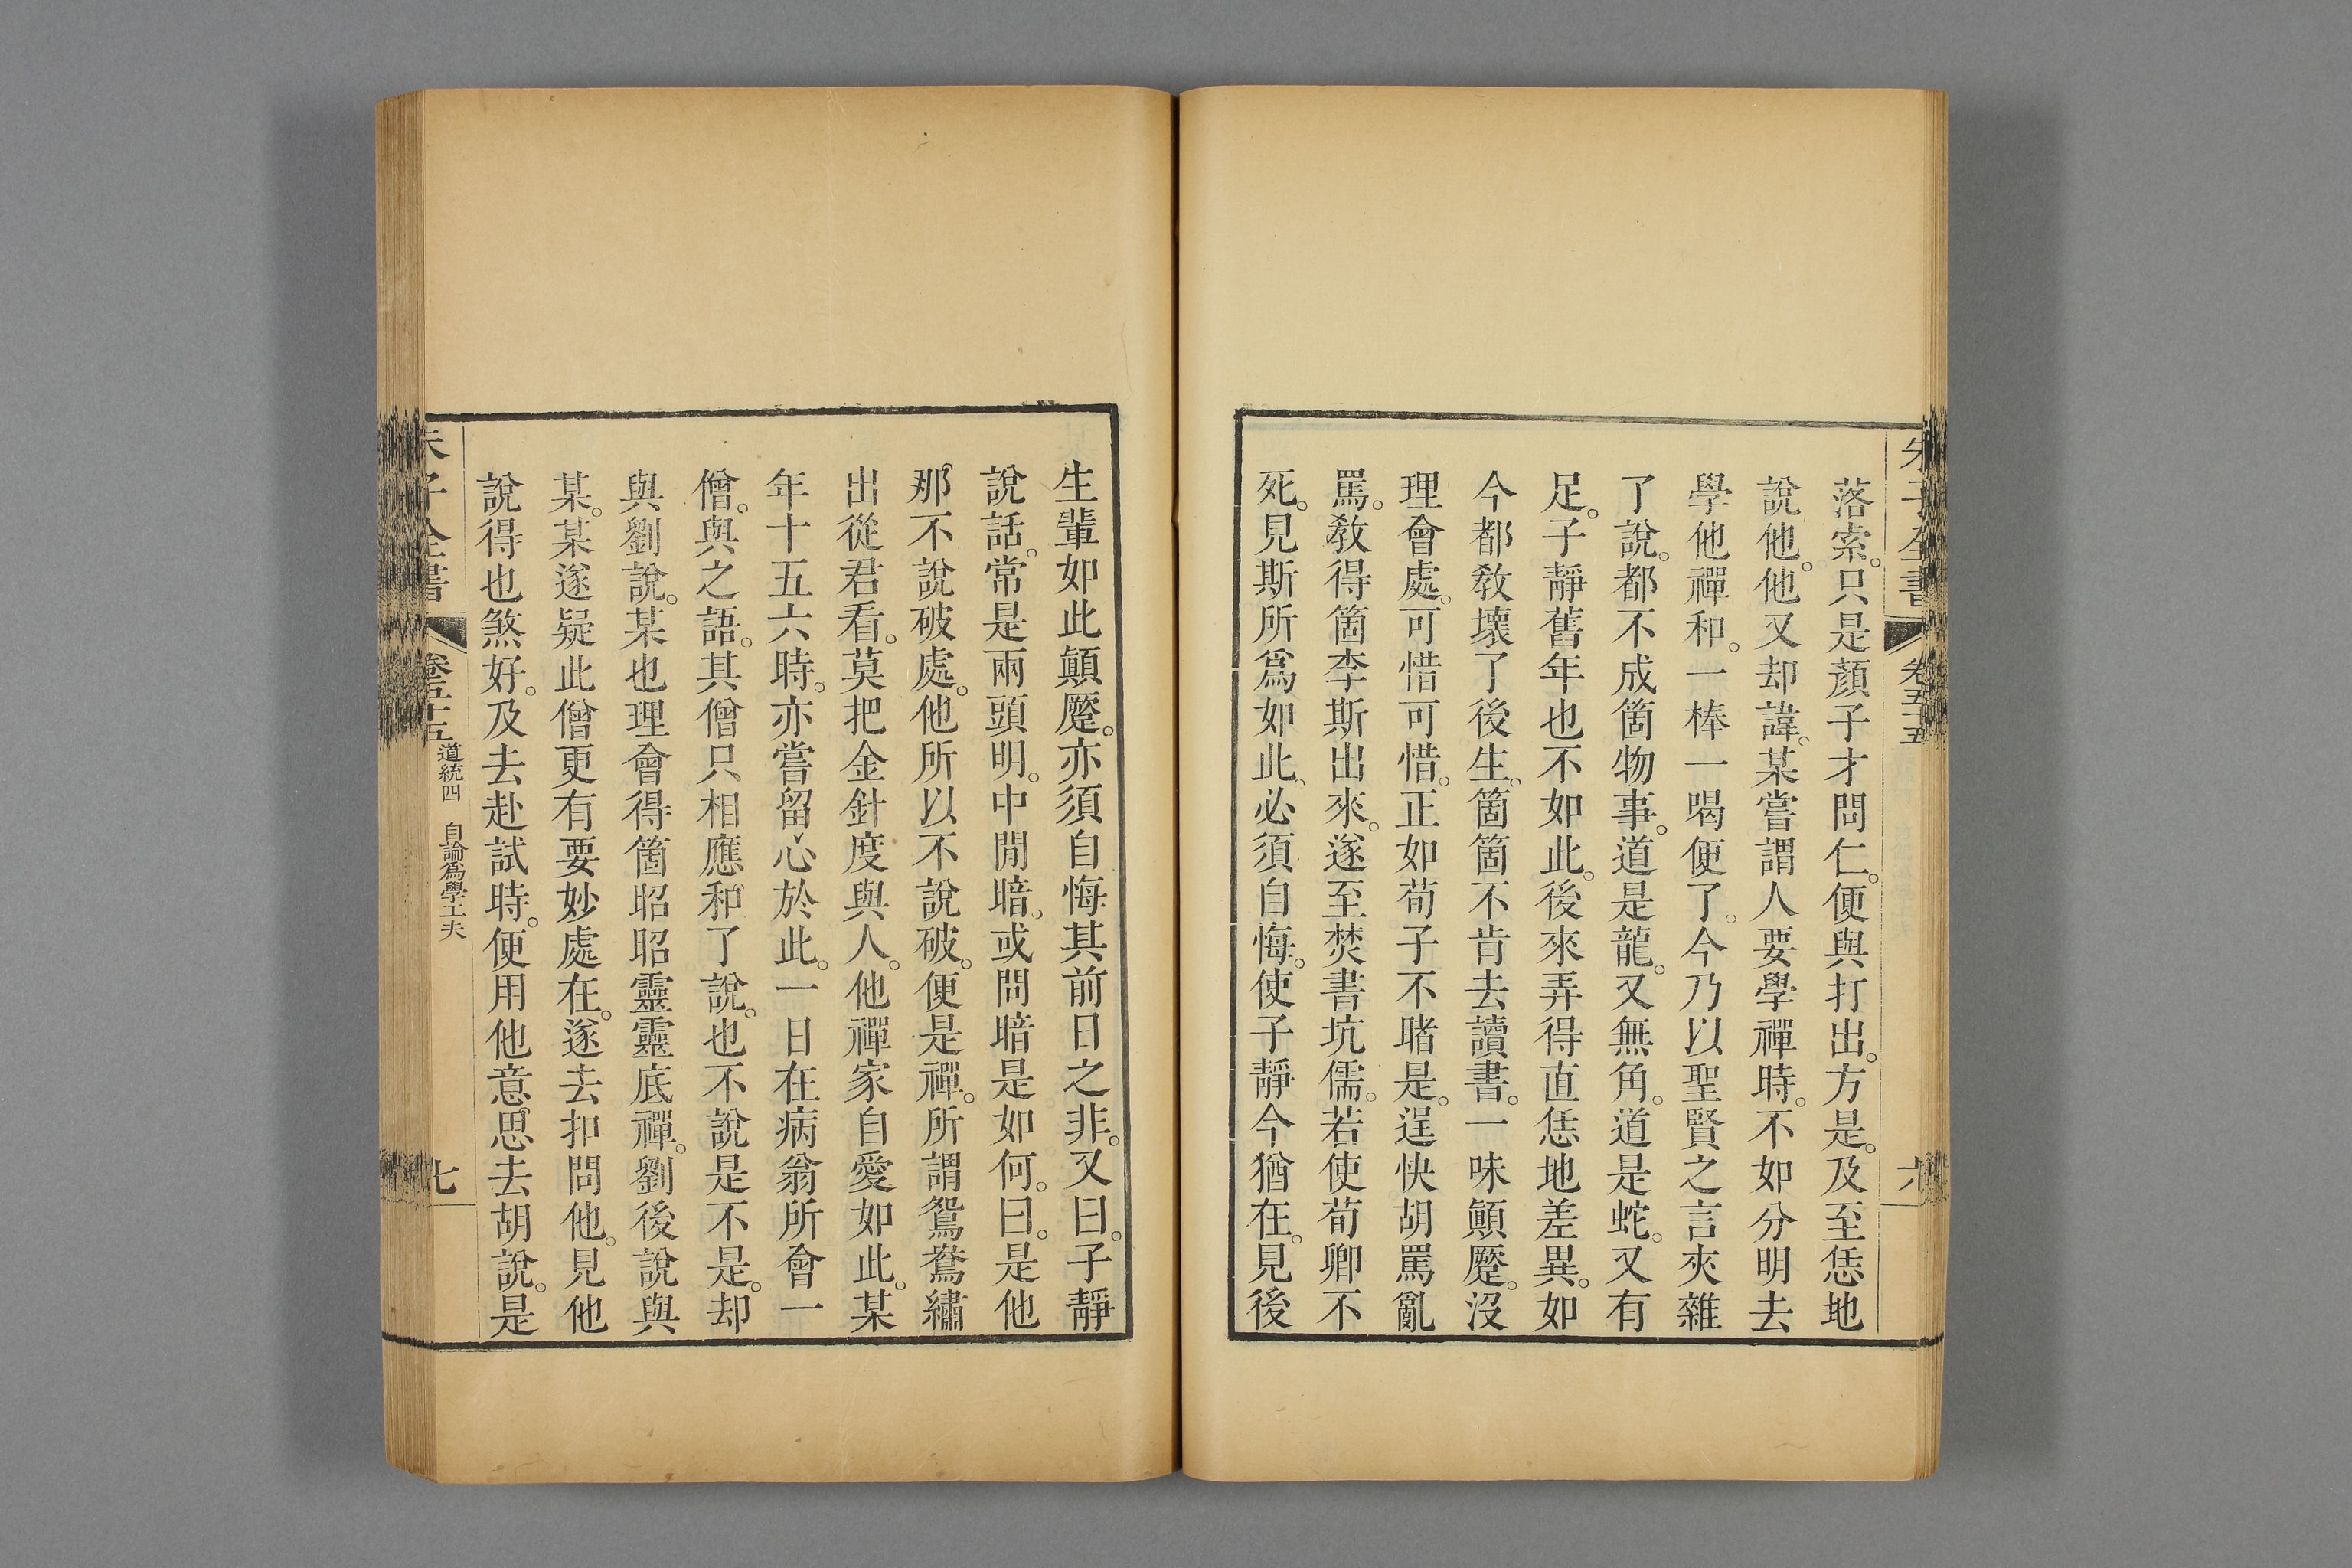 朱子全書
卷五十五
六
落索。只是顏子才問仁。便與打出。方是。及至恁地
說他。他又却諱。某嘗謂人要學禪時。不如分明去
學他禪和。一棒一喝便了。今乃以聖賢之言夾雜
了說。都不成箇物事。道是龍。又無角。道是蛇。又有
足。子靜舊年也不如此。後來弄得直恁地差異。如
今都教壞了後生。箇箇不肯去讀書。一味顚蹷。沒
理會處。可惜可惜。正如荀子不睹是。逞快胡罵亂
罵。教得箇李斯出來。遂至焚書坑儒。若使荀卿不
死。見斯所爲如此、必須自悔。使子靜今猶在。見後
生輩如此顚蹷。亦須自悔其前日之非。又曰。子靜
說話。常是兩頭明。中閒暗、或問暗是如何。曰。是他
那不說破處。他所以不說破。便是禪。所謂鴛鴦繡
出從君看。莫把金針度與人。他禪家自愛如此。某
年十五六時。亦嘗留心於此。一日在病翁所會一
僧。與之語。其僧只相應和了說。也不說是不是。却
與劉說。某也理會得箇昭昭靈靈底禪。劉後說與
某。某遂疑此僧更有要妙處在。遂去扣問他。見他
說得也煞好。及去赴試時。便用他意思去胡說。是
朱子全書
卷五十五
道統四 自論爲學工夫
七